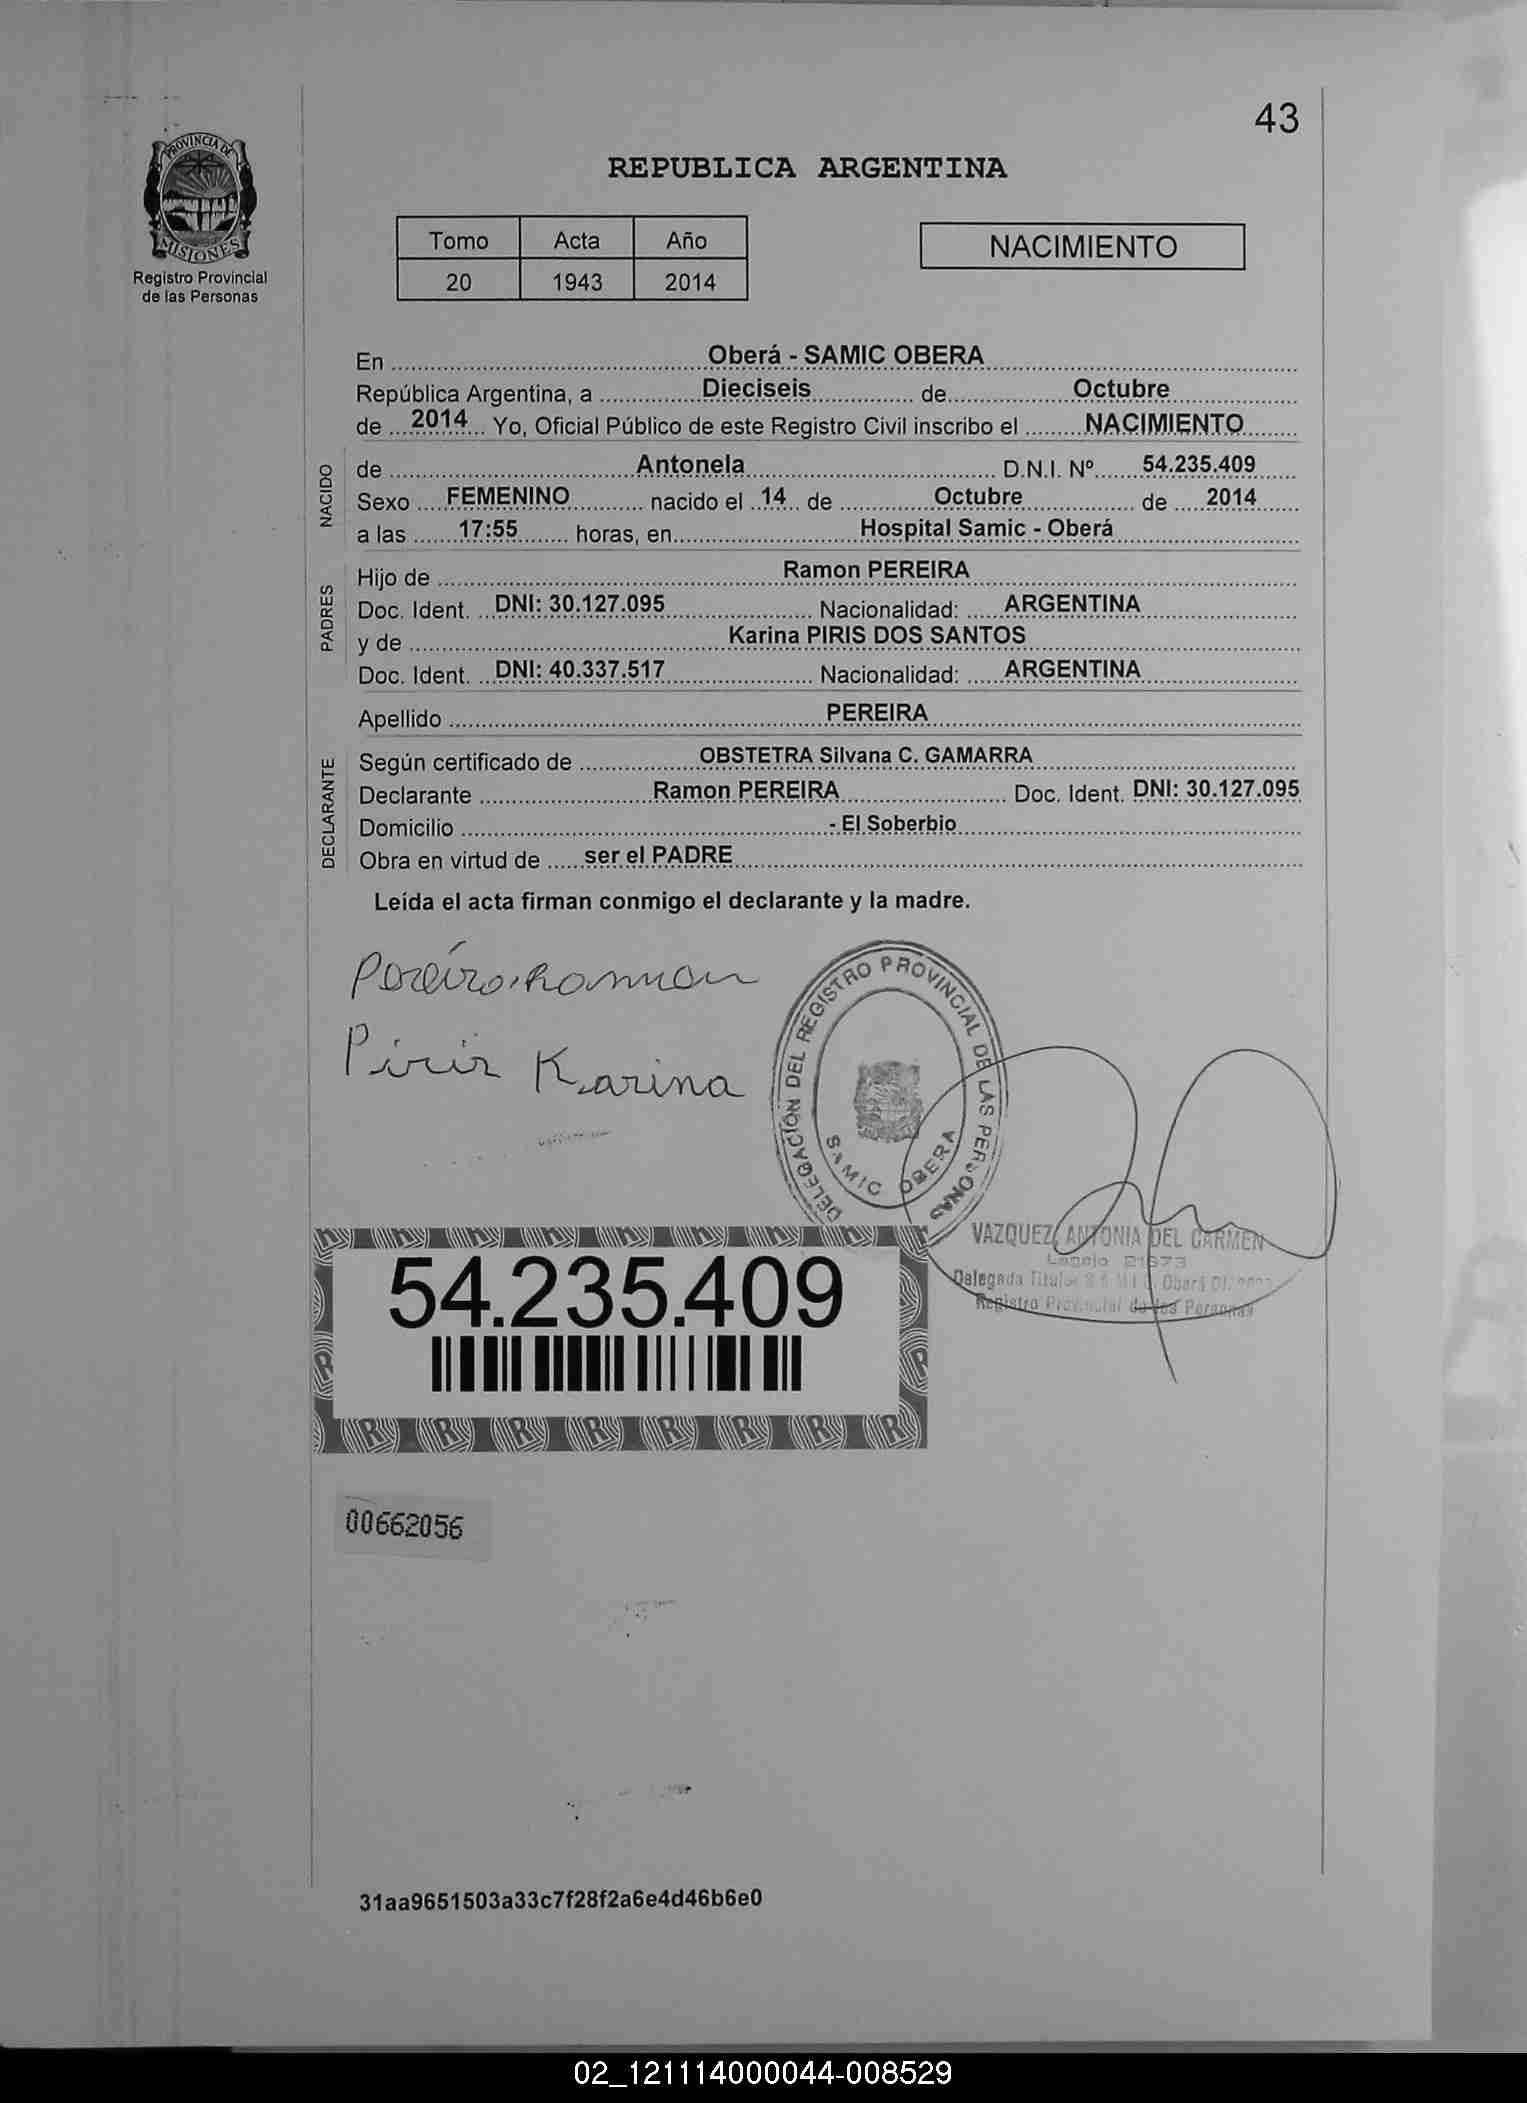 43
PROVINCIA DE
MISIONES
Registro Provincial
de las Personas
REPUBLICA ARGENTINA
Tomo Acta Año
20 1943 2014
NACIMIENTO
En Oberá - SAMIC OBERA
República Argentina, a Dieciseis de Octubre
de 2014 Yo, Oficial Público de este Registro Civil inscribo el NACIMIENTO
NACIDO
de Antonela D.N.I. Nº 54.235.409
Sexo FEMENINO nacido el 14 de Octubre de 2014
a las 17:55 horas, en Hospital Samic - Oberá
PADRES
Hijo de Ramon PEREIRA
Doc. Ident. DNI: 30.127.095 Nacionalidad: ARGENTINA
y de Karina PIRIS DOS SANTOS
Doc. Ident. DNI: 40.337.517 Nacionalidad: ARGENTINA
Apellido PEREIRA
DECLARANTE
Según certificado de OBSTETRA Silvana C. GAMARRA
Declarante Ramon PEREIRA Doc. Ident. DNI: 30.127.095
Domicilio - El Soberbio
Obra en virtud de ser el PADRE
Leída el acta firman conmigo el declarante y la madre.
Pereira Ramon
Piris Karina
DELEGACIÓN DEL REGISTRO PROVINCIAL DE LAS PERSONAS
SAMIC OBERA
VAZQUEZ, ANTONIA DEL CARMEN
Legajo
Delegada Titular Oberá
Registro Provincial de las Personas
54.235.409
00662056
31aa9651503a33c7f28f2a6e4d46b6e0
02_121114000044-008529